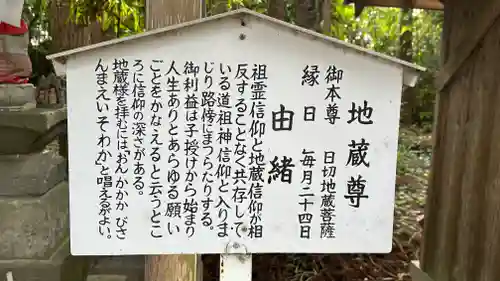 地蔵尊
御本尊　日切地蔵菩薩
縁日　毎月二十四日
由緒
祖霊信仰と地蔵信仰が相
反することなく共存して
いる道祖神信仰と入りま
じり路傍にまつったりする。
御利益は子授けから始まり
人生ありとあらゆる願い
ごとをかなえると云うとこ
ろに信仰の深さがある。
地蔵様を拝むには「おん かかか びさ
んまえい そわか」と唱えるがよい。